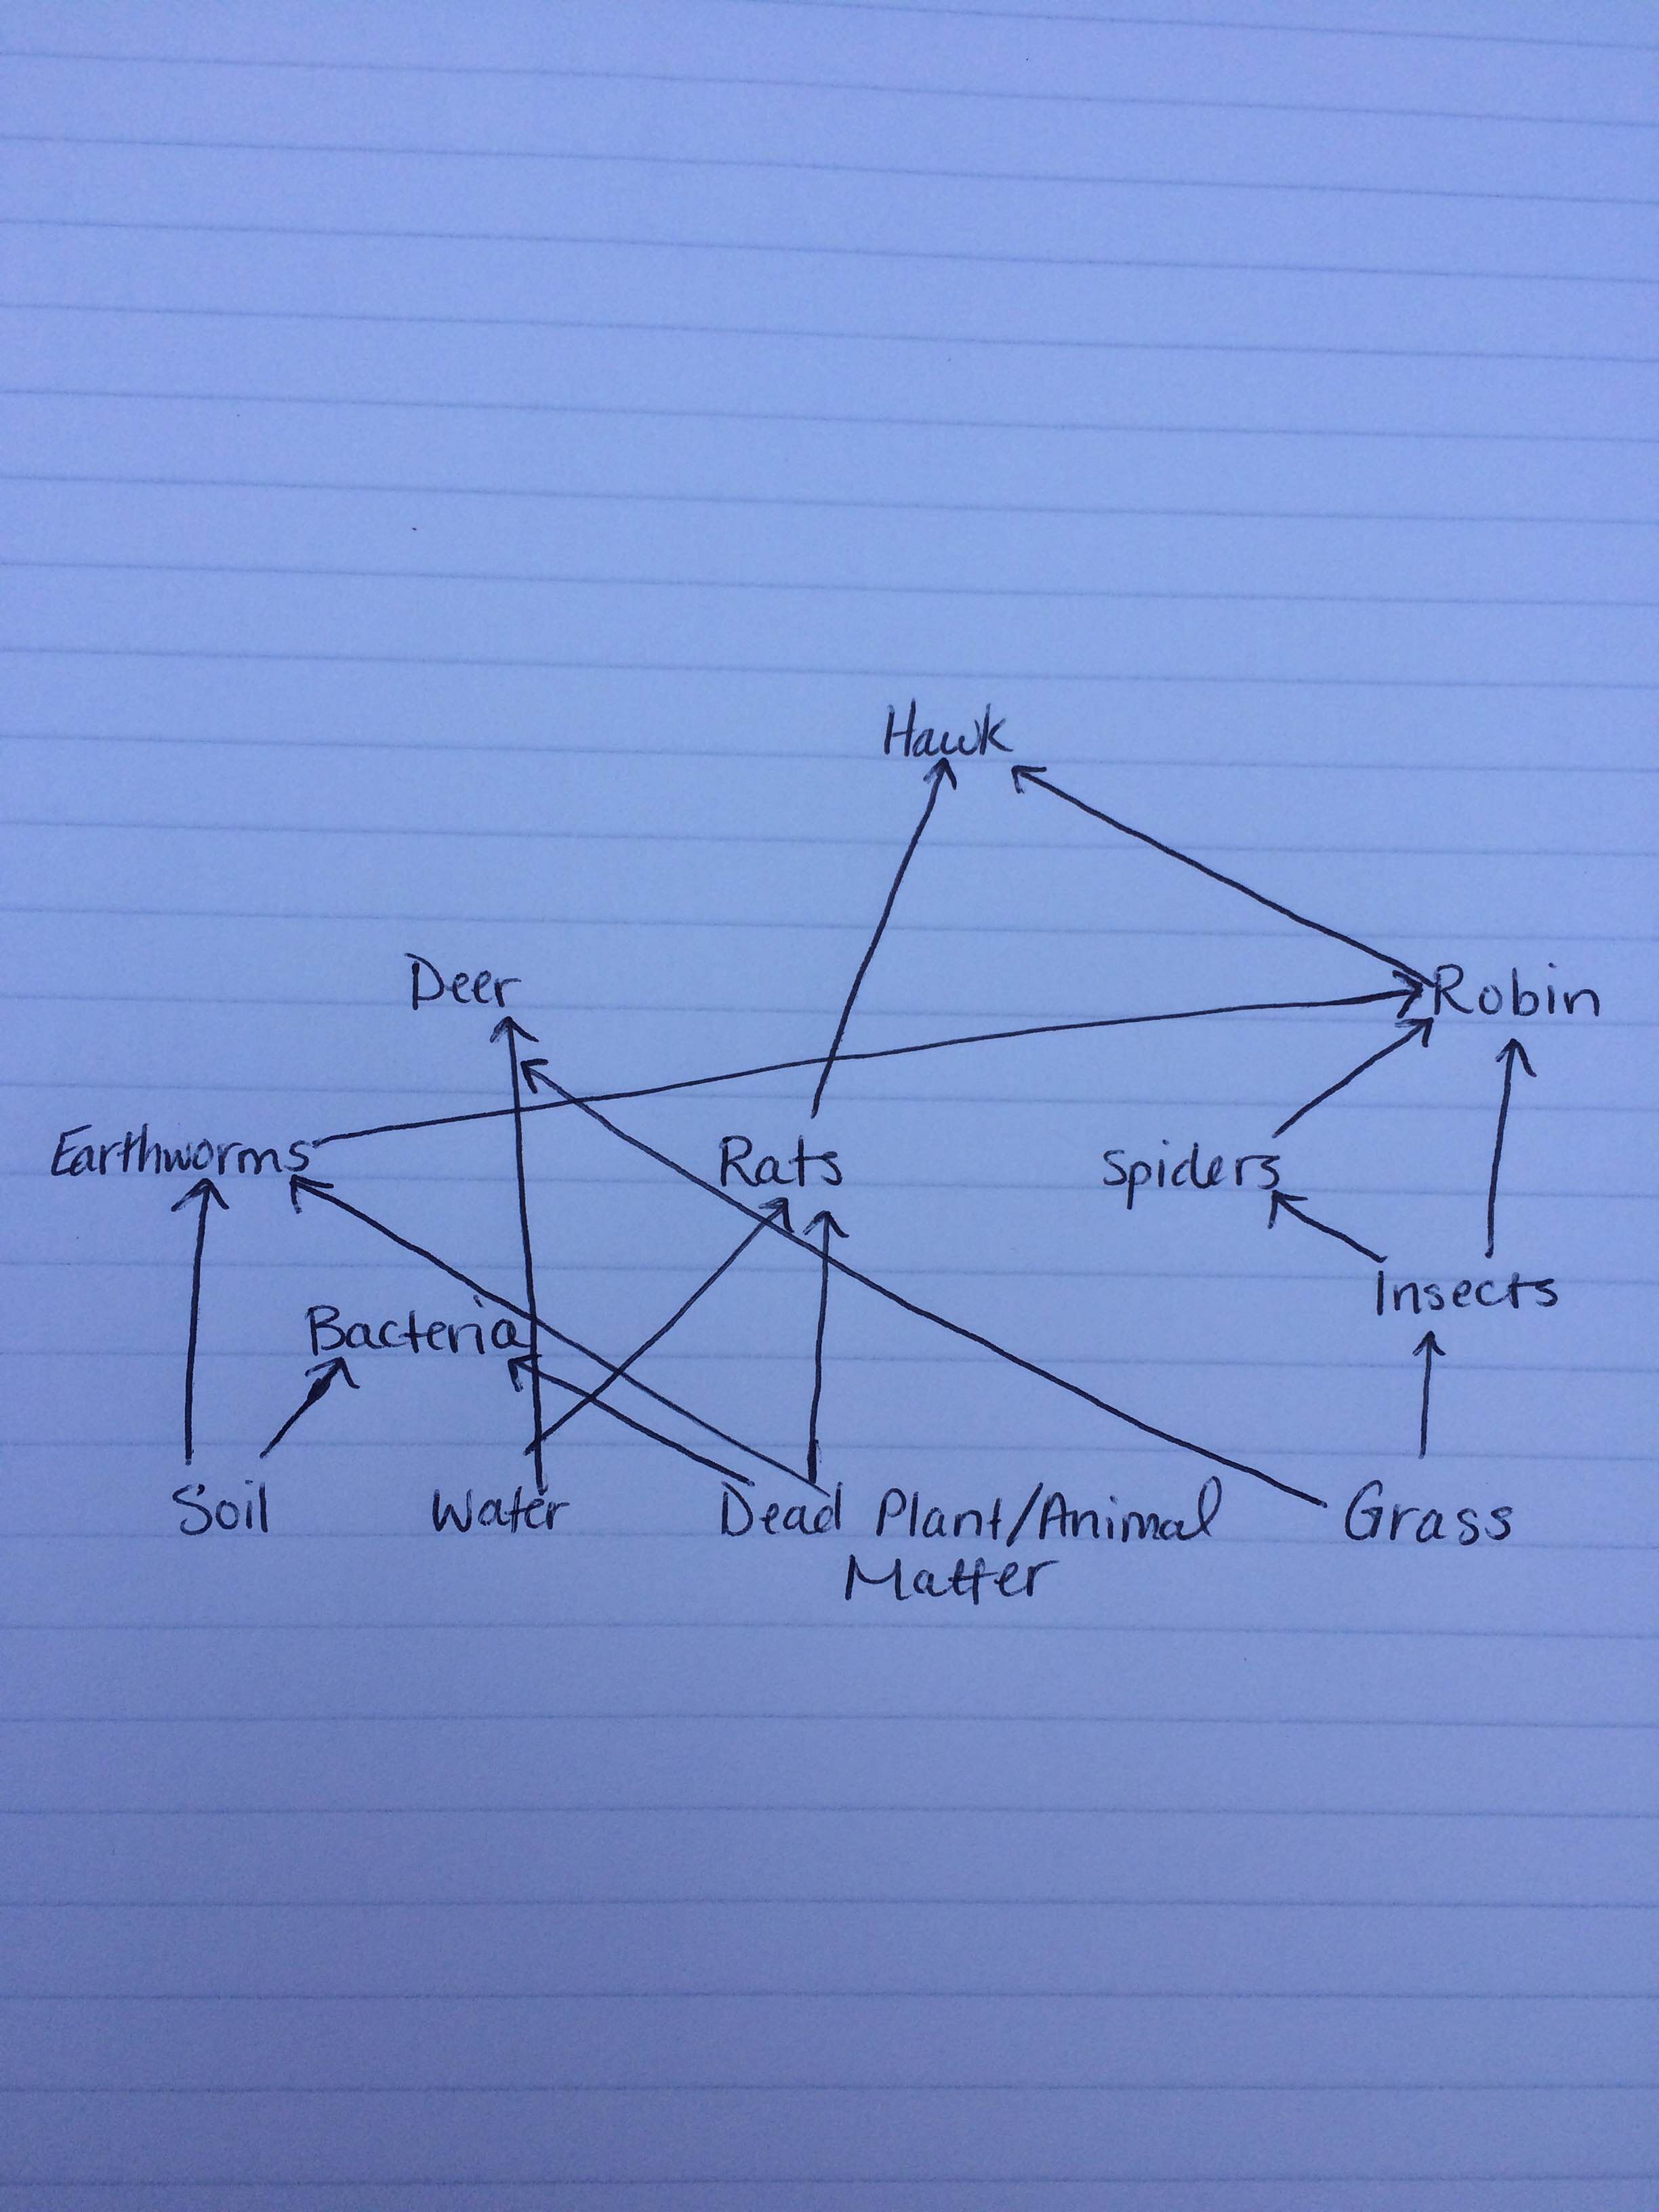 Hawk
Deer
Robin
Earthworms
Rats
Spiders
Insects
Bacteria
Soil
Water
Dead Plant/Animal
Matter
Grass